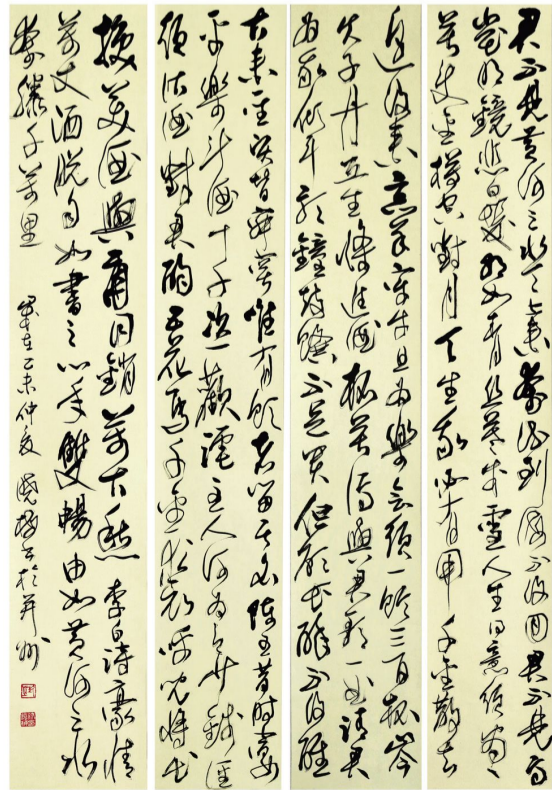 君不見黃河之水天上來奔流到海不復回君不見高
堂明鏡悲白髮朝如青絲暮成雪人生得意須盡歡
莫使金樽空對月天生我必有用千金散去
還復來烹羊宰牛且為樂會須一飲三百杯岑
夫子丹丘生將進酒杯莫停與君歌一曲請君
為我傾耳聽鐘鼓饌不足貴但願長醉不復醒
古來聖賢皆寂寞唯有飲者留其名陳王昔時宴
平樂斗酒十千恣歡謔主人何為言少錢徑
須沽酒對君酌五花馬千金裘呼兒將出
換美酒與爾同銷萬古愁 李白詩豪情
萬丈洒脫自如書之心手雙暢由如黃河之水
奔騰千萬里 歲在乙未仲夏 書於并州